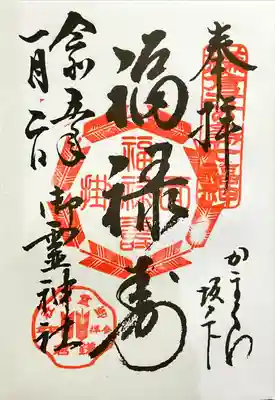 奉拝
かまくら
坂ノ下
福禄寿
福禄寿
御霊神社
令和五年
一月二日